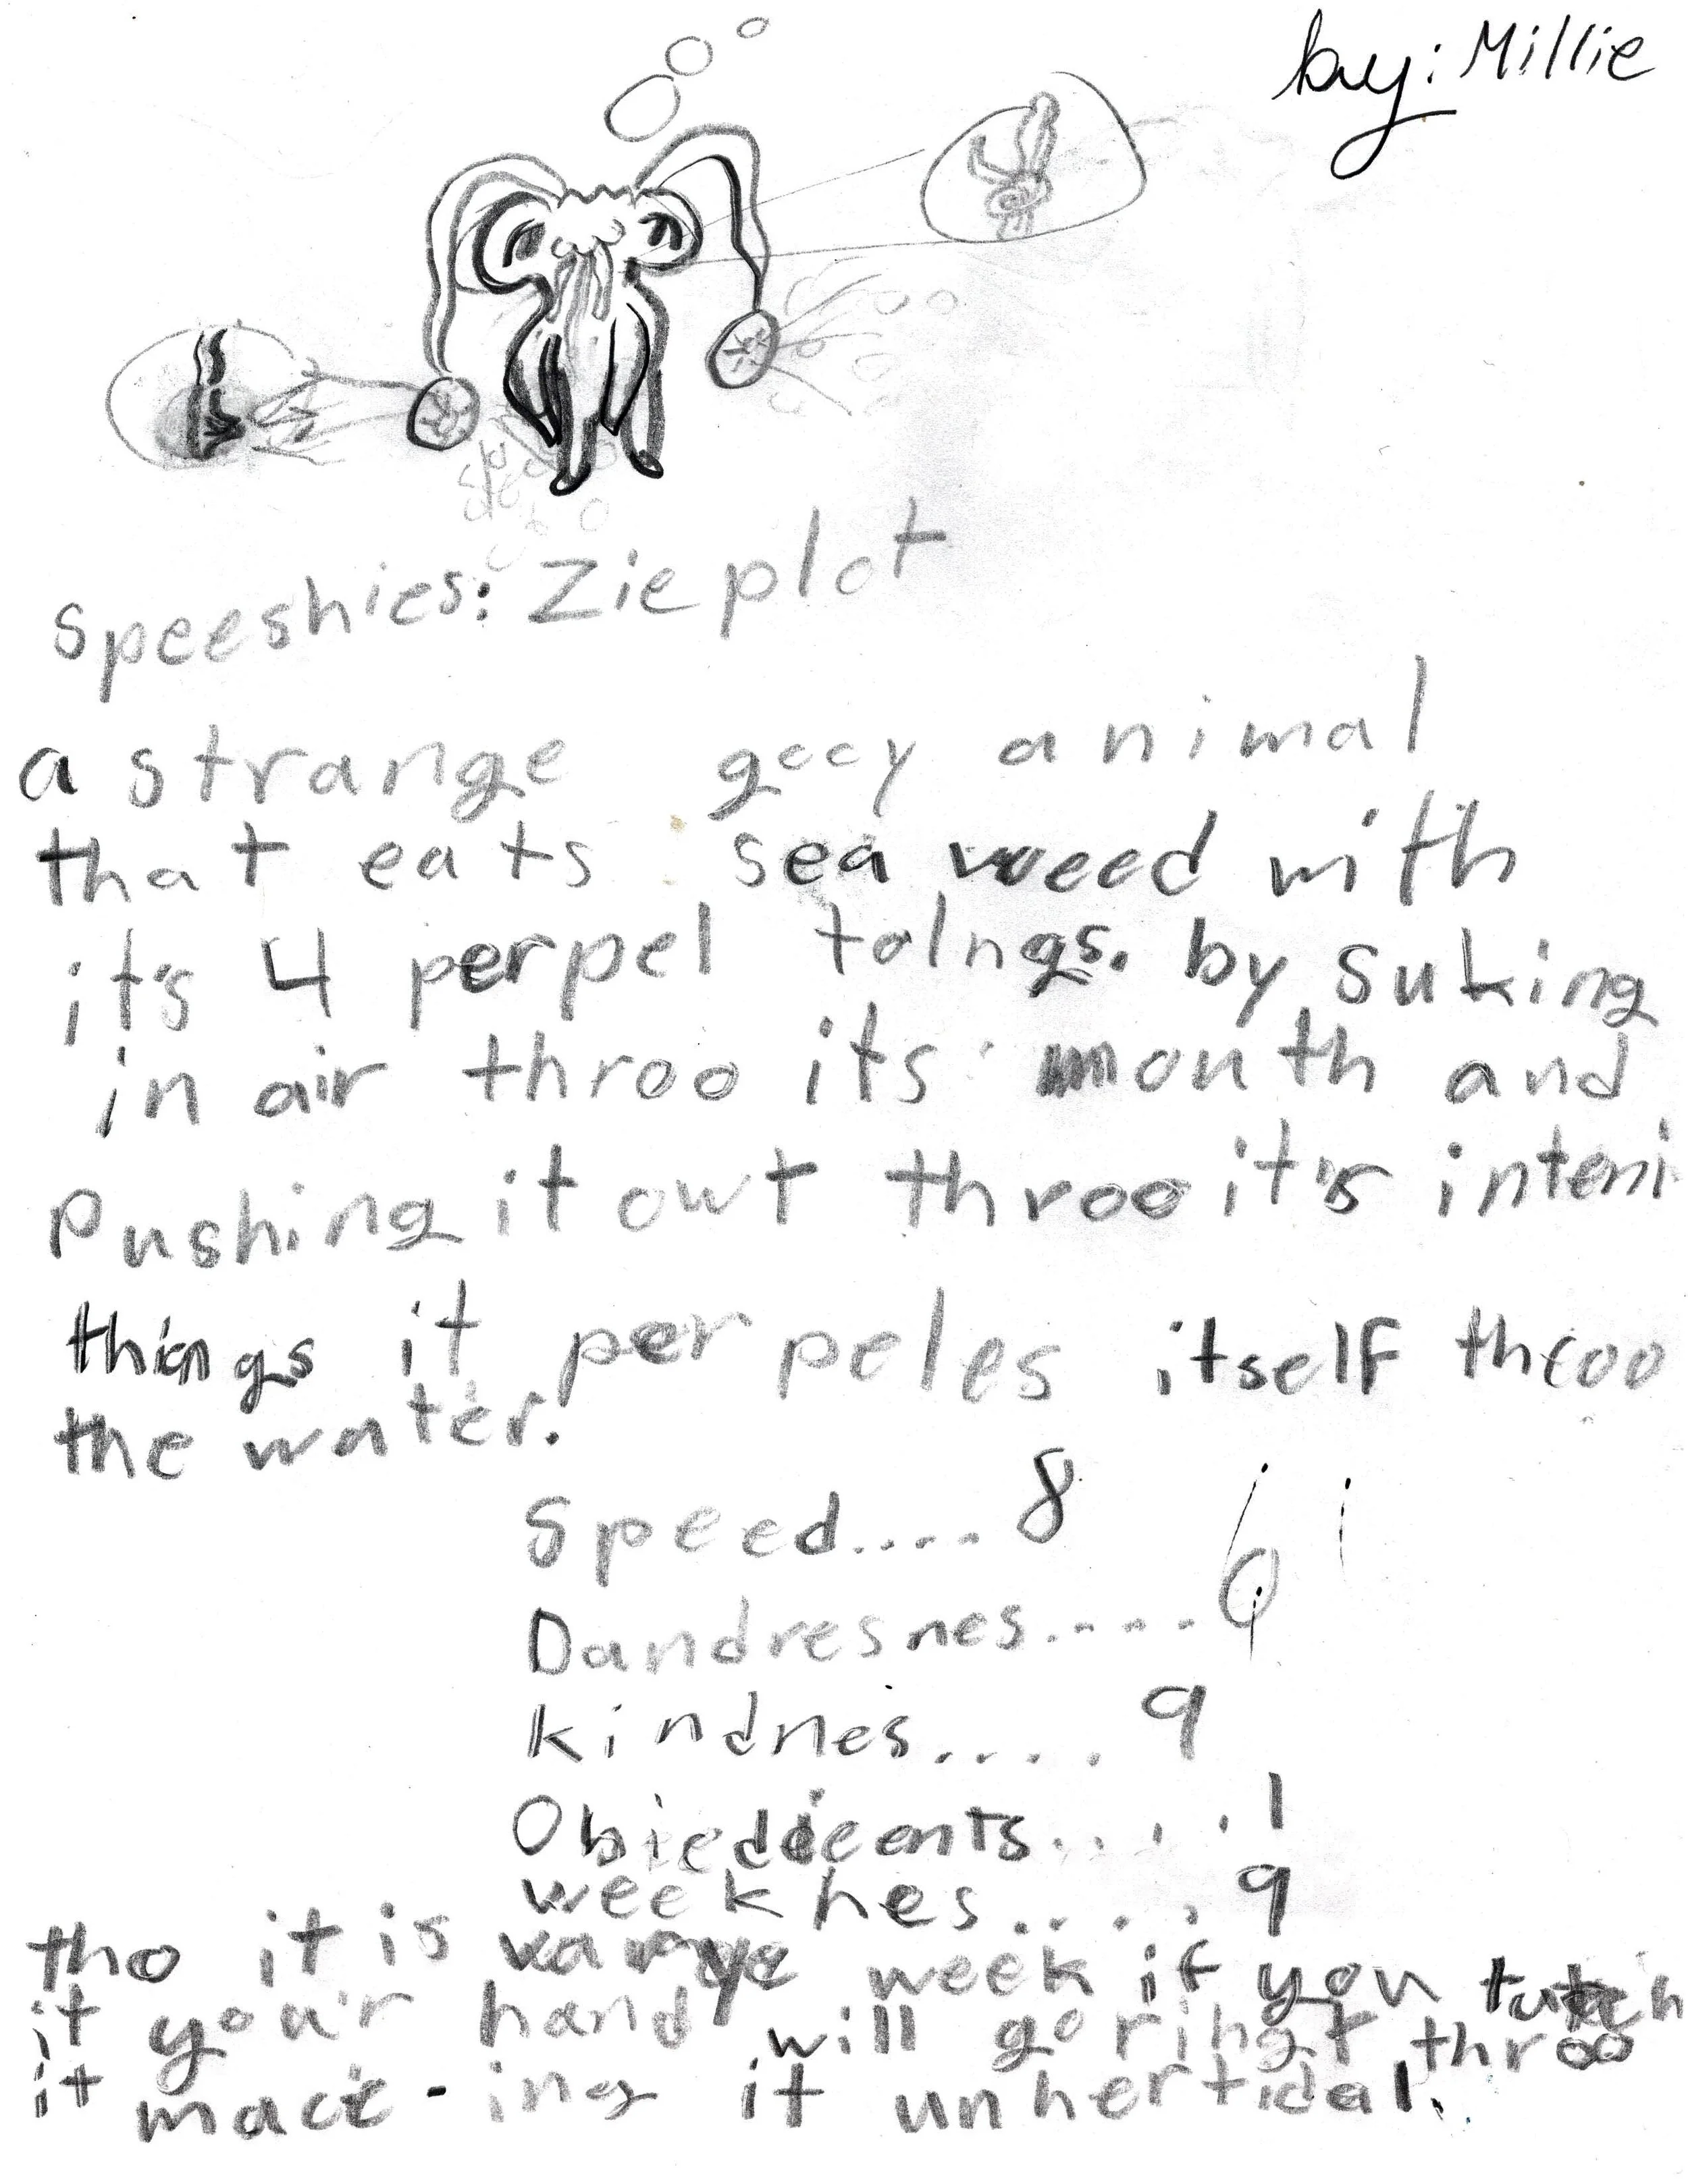 by: Millie
speeshies: Zieplot
a strange gooy animal
that eats sea weed with
it's 4 perpel tolngs. by suking
in air throo its mouth and
Pushing it owt throo it's inteni
things it perpeles itself throo
the water.
Speed.... 8
Dandresnes.... 6
kindnes.... 9
Obieddients.... 1
weeknes.... 9
tho it is varye week if you tutch
it your hand will go right throo
it mace-ing it unhertidal.